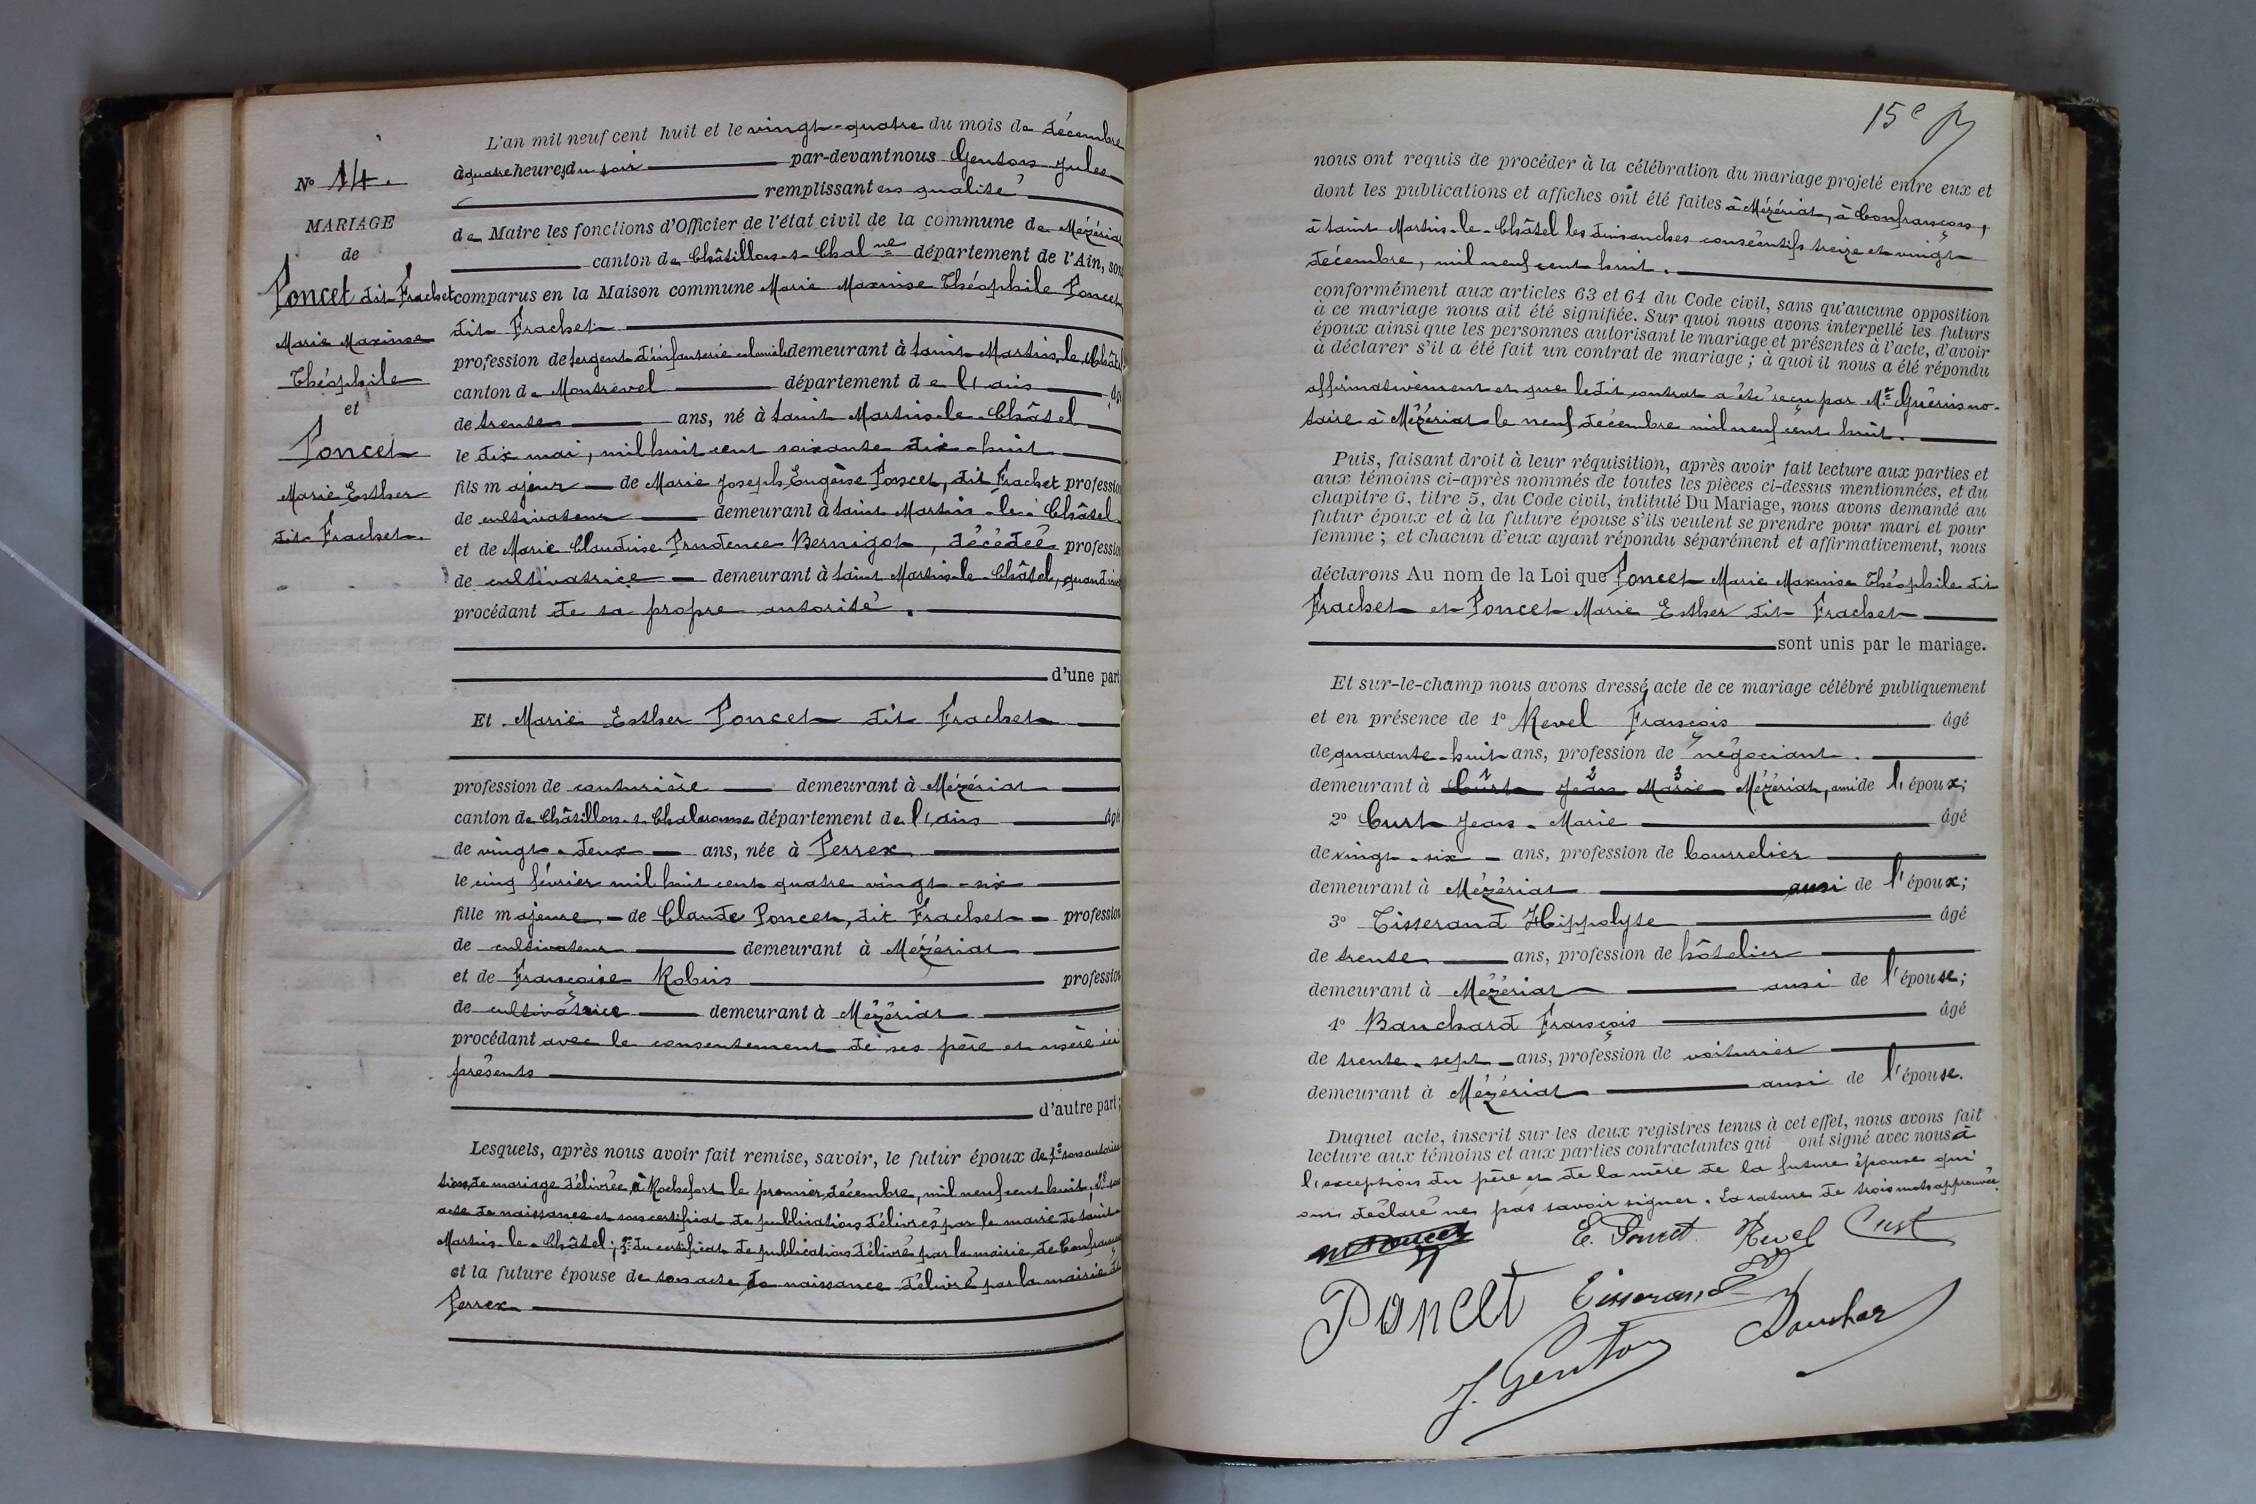 N° 14.
MARIAGE
de
Poncet dit Frachet
Marie Maxime
Théophile
et
Poncet
Marie Esther
dit Frachet.
L'an mil neuf cent huit et le vingt-quatre du mois de décembre
à quatre heures du soir par-devant nous Genton Jules
remplissant en qualité
de Maire les fonctions d'Officier de l'état civil de la commune de Mézériat
canton de Châtillon-s-Chalne département de l'Ain, sont
comparus en la Maison commune Marie Maxime Théophile Poncet
dit Frachet
profession de sergent d'infanterie coloniale demeurant à Saint Martin-le-Châtel
canton de Montrevel département de l'Ain âgé
de trente ans, né à Saint Martin-le-Châtel
le dix mai, mil huit cent soixante dix-huit
fils majeur de Marie Joseph Eugène Poncet, dit Frachet profession
de cultivateur demeurant à Saint Martin-le-Châtel
et de Marie Claudine Prudence Bernigot, décédée profession
de cultivatrice demeurant à Saint Martin-le-Châtel, quand vivait
procédant de sa propre autorité.
d'une part
Et Marie Esther Poncet dit Frachet
profession de couturière demeurant à Mézériat
canton de Châtillon-s-Chalaronne département de l'Ain âgée
de vingt-deux ans, née à Perrex
le cinq février mil huit cent quatre vingt-six
fille majeure, de Claude Poncet, dit Frachet profession
de cultivateur demeurant à Mézériat
et de Françoise Robin profession
de cultivatrice demeurant à Mézériat
procédant avec le consentement de ses père et mère ici
présents
d'autre part;
Lesquels, après nous avoir fait remise, savoir, le futur époux de 1° son autorisa
tion de mariage délivrée à Rochefort le premier décembre, mil neuf cent huit, 2° son
acte de naissance et son certificat de publications délivrés par le maire de Saint
Martin-le-Châtel; 3° du certificat de publications délivré par la mairie de Confrançon
et la future épouse de son acte de naissance délivré par la mairie de
Perrex
15e
nous ont requis de procéder à la célébration du mariage projeté entre eux et
dont les publications et affiches ont été faites à Mézériat, à Confrançon,
à Saint Martin-le-Châtel les dimanches consécutifs treize et vingt
décembre, mil neuf cent huit.
conformément aux articles 63 et 64 du Code civil, sans qu'aucune opposition
à ce mariage nous ait été signifiée. Sur quoi nous avons interpellé les futurs
époux ainsi que les personnes autorisant le mariage et présentes à l'acte, d'avoir
à déclarer s'il a été fait un contrat de mariage; à quoi il nous a été répondu
affirmativement et que ledit contrat a été reçu par Me Guérin no-
taire à Mézériat le neuf décembre mil neuf cent huit.
Puis, faisant droit à leur réquisition, après avoir fait lecture aux parties et
aux témoins ci-après nommés de toutes les pièces ci-dessus mentionnées, et du
chapitre 6, titre 5, du Code civil, intitulé Du Mariage, nous avons demandé au
futur époux et à la future épouse s'ils veulent se prendre pour mari et pour
femme; et chacun d'eux ayant répondu séparément et affirmativement, nous
déclarons Au nom de la Loi que Poncet Marie Maxime Théophile dit
Frachet et Poncet Marie Esther dit Frachet
sont unis par le mariage.
Et sur-le-champ nous avons dressé acte de ce mariage célébré publiquement
et en présence de 1° Revel François âgé
de quarante-huit ans, profession de négociant.
demeurant à Curt Jean Marie Mézériat, ami de l'époux;
2° Curt Jean-Marie âgé
de vingt-six ans, profession de Bourrelier
demeurant à Mézériat ami de l'époux;
3° Tisserand Hippolyte âgé
de trente ans, profession de hôtelier
demeurant à Mézériat ami de l'épouse;
4° Bauchard François âgé
de trente-sept ans, profession de voiturier
demeurant à Mézériat ami de l'épouse.
Duquel acte, inscrit sur les deux registres tenus à cet effet, nous avons fait
lecture aux témoins et aux parties contractantes qui ont signé avec nous à
l'exception du père et de la mère de la future épouse qui
ont déclaré ne pas savoir signer. La rature de trois mots approuvée.
E. Poncet Revel Curt
Poncet Tisserand
J. Genton